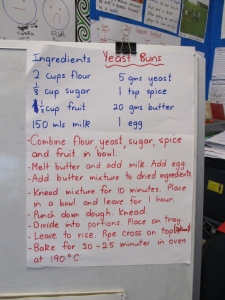 Ingredients Yeast Buns
2 cups flour 5 gms yeast
1/8 cup sugar 1 tsp spice
1/2 cup fruit 20 gms butter
150 mls milk 1 egg
- Combine flour, yeast, sugar, spice
and fruit in bowl.
- Melt butter and add milk. Add egg.
- Add butter mixture to dried ingredients.
- Knead mixture for 10 minutes. Place
in a bowl and leave for 1 hour.
- Punch down dough. Knead.
- Divide into portions. Place on tray.
- Leave to rise. Pipe cross on top
- Bake for 20-25 minutes in oven
at 190°C